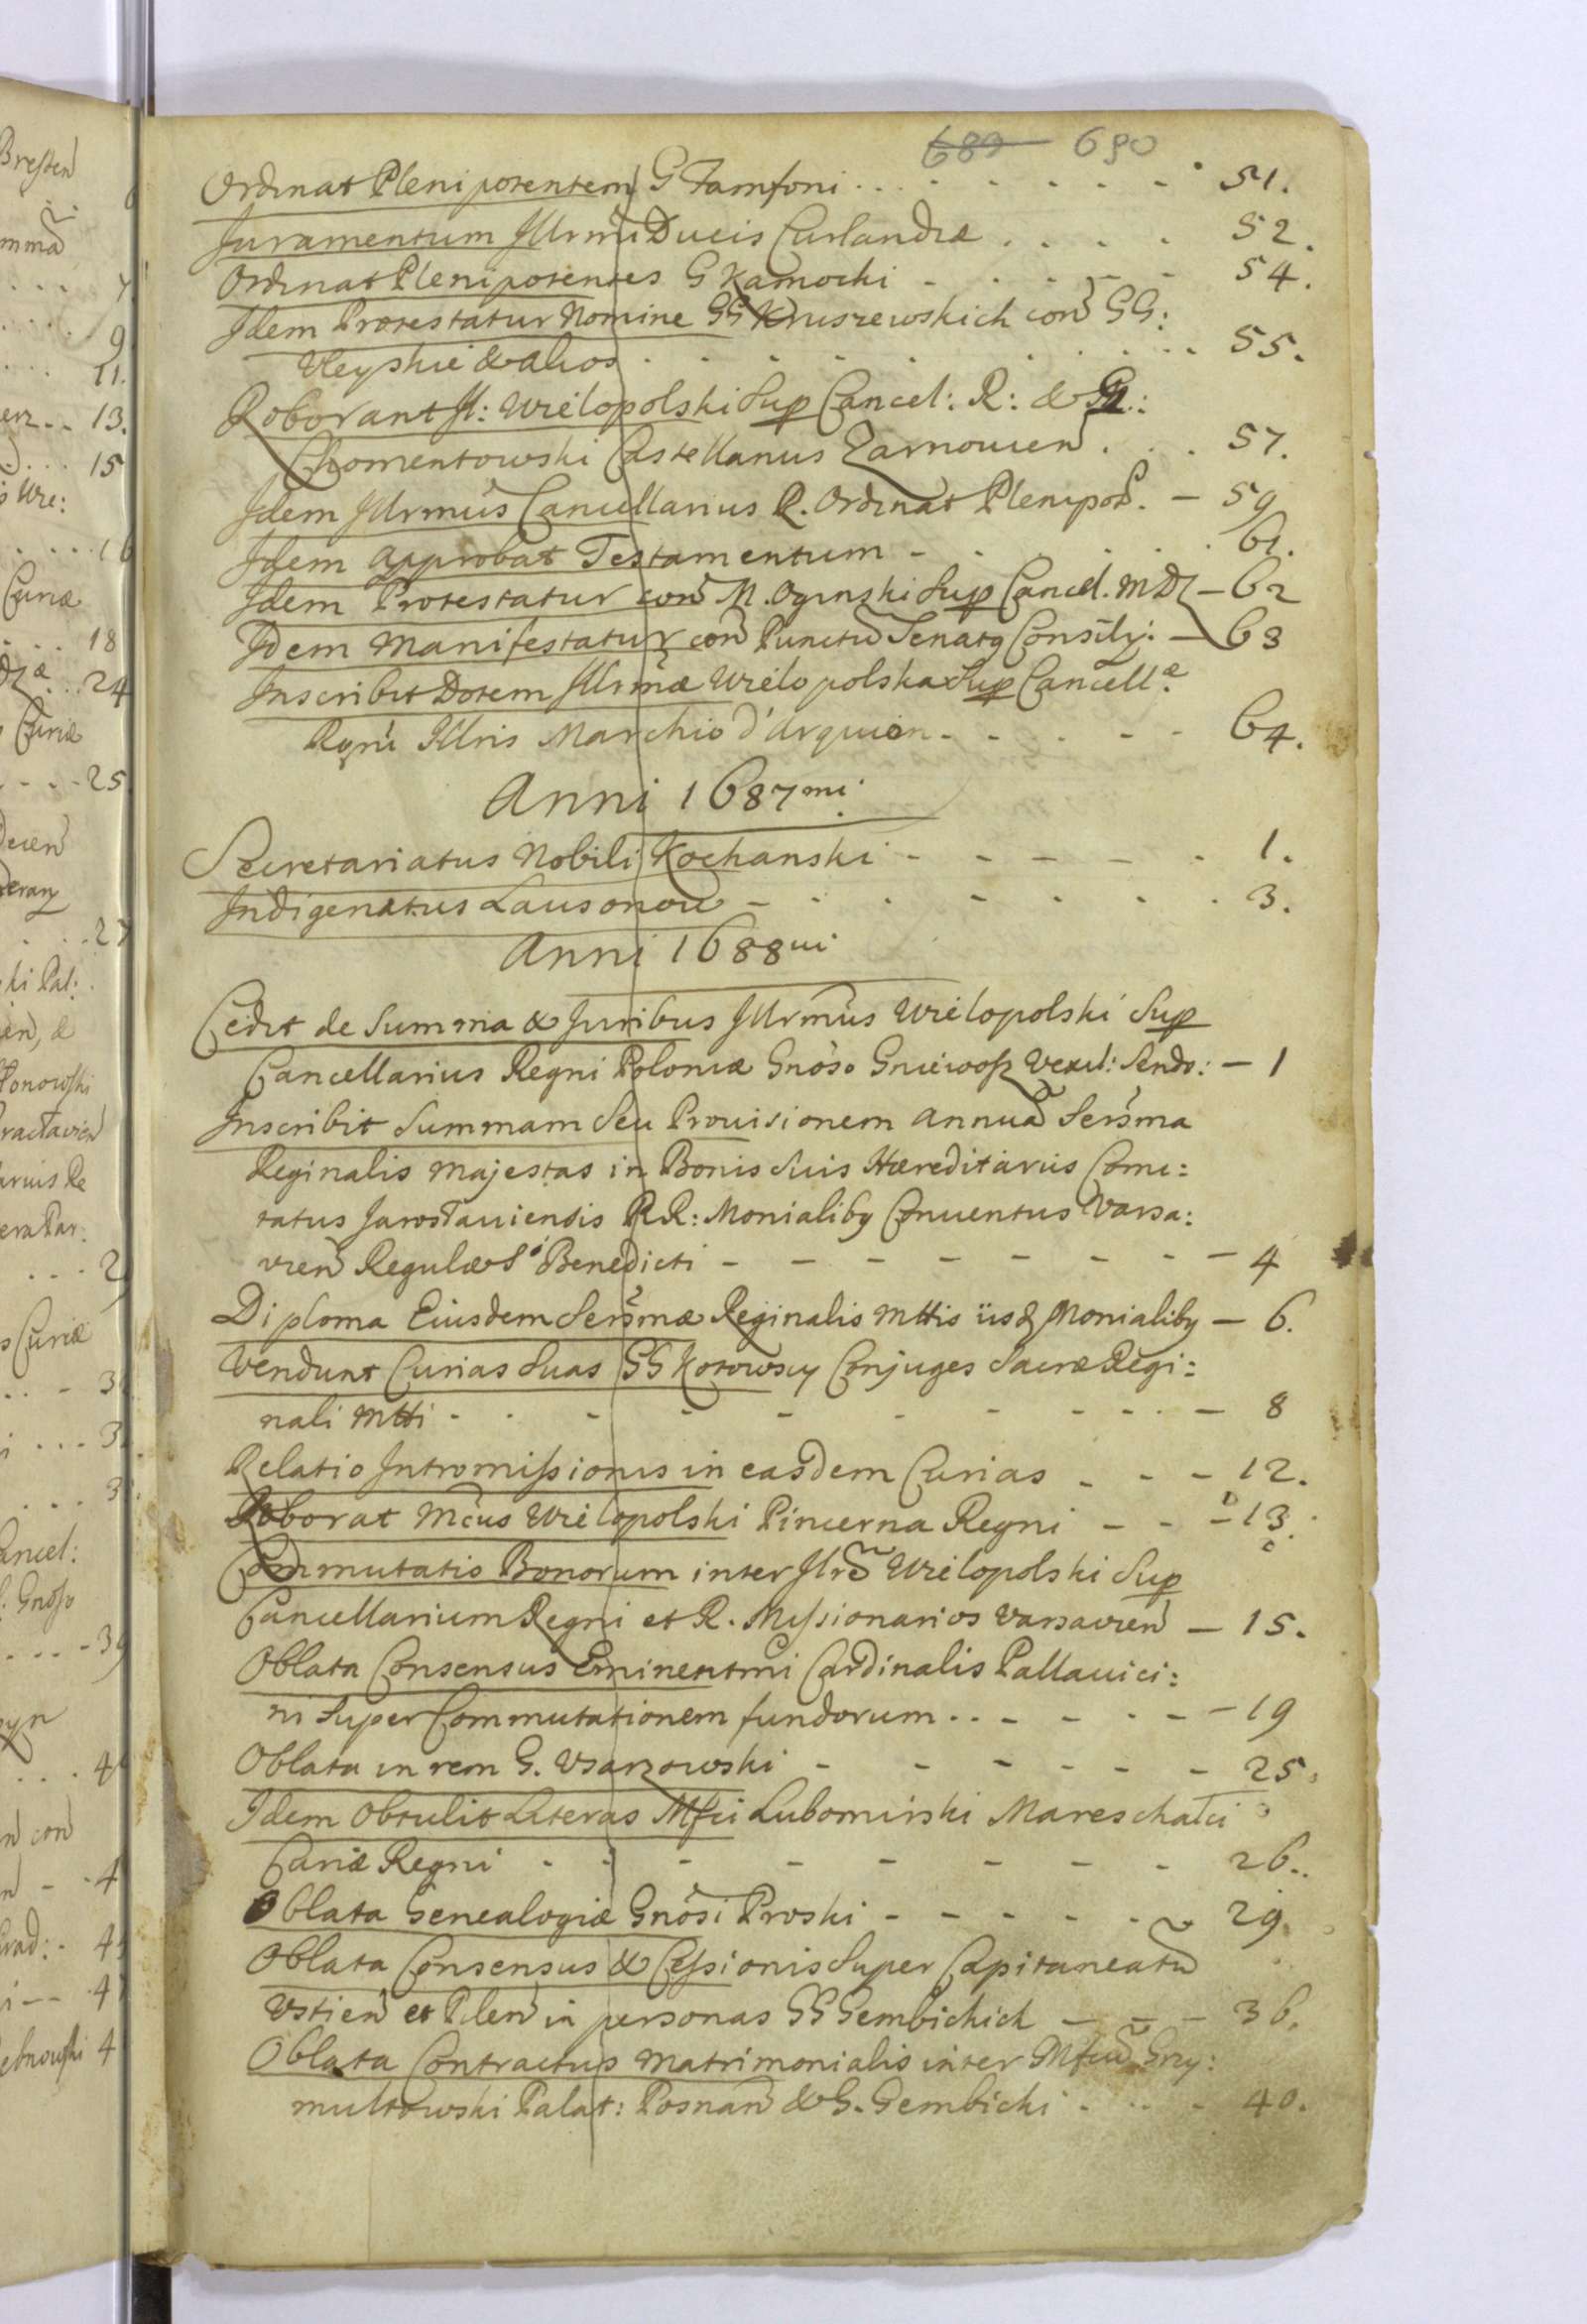 689 690
Ordinat Plenipotentem G Famfoni . . . . . . . . 51.
Juramentum Illrmi Ducis Curlandiæ . . . . 52.
Ordinat Plenipotentes G Kamocki - . . . - - 54.
Idem Protestatur Nomine GG Kruszewskich con GG:
Uleyskie & alios . . . . . . . . . 55.
Roborant Il: Wielopolski Sup Cancel: R: & G.:
Chomentowski Castellanus Zarnowien . . . 57.
Idem Illrmus Cancellarius R. Ordinat Plenipot. - 59
Idem Approbat Testamentum - . . . . 61.
Idem Protestatur con M. Oginski Sup Cancel. MDL - 62
Idem Manifestatur con Punctu Senatq Consily: - 63
Inscribit Dotem Illrmæ Wielopolska Sup Cancellæ
Regni Illris Marchio d'Arquien - - . . - - 64.
Anni 1687mi.
Secretariatus Nobili Kochanski - - - - - . 1.
Indigenatus Lausonow - - . . - . . . 3.
Anni 1688ui
Cedit de Summa & Juribus Illrmus Wielopolski Sup
Cancellarius Regni Poloniæ Gnoso Gniewosz Vexil: Sendo: - 1
Inscribit Summam Seu Prouisionem annua Sersma
Reginalis Majestas in Bonis Suis Hæreditariis Comi:
tatus Jaroslauiensis RR: Monialibq Conuentus Varsa:
vien Regulæ S. Benedicti - - - - - - - - 4
Diploma Eiusdem Sersmæ Reginalis Mttis iisd Monialibq - 6.
Vendunt Curias Suas GG Kotowscy Conjuges Sacræ Regi:
nali Mtti - . - - - - - - - . - 8
Relatio Intromissionis in easdem Curias - - - 12.
Roborat Mcus Wielopolski Pincerna Regni - - - 13.
Commutatio Bonorum inter Illre Wielopolski Sup
Cancellarium Regni et R. Missionarios Varsavien - 15.
Oblata Consensus Eminentmi Cardinalis Pallauici:
ni Super Commutationem fundorum . . - - . - - 19
Oblata in rem G. Wsarzowski - - - - - - 25.
Idem Obtulit Literas Mfci Lubomirski Mareschalci
Curiæ Regni - - - - - - - - 26..
Oblata Genealogiæ Gnosi Proski - - - - . - 29.
Oblata Consensus & Cessionis Super Capitaneatu
Ustien et Pilen in personas GG Gembickich - - - 36.
Oblata Contractus Matrimonialis inter Mfcu Grzy:
multowski Palat: Posnan & G. Gembicki - . . - 40.